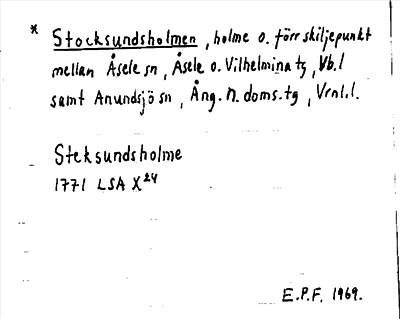 * Stocksundsholmen, holme o. förr skiljepunkt
mellan Åsele sn, Åsele o. Vilhelmina tg, Vb.l
samt Anundsjö sn, Ång. n. doms. tg, Vrnl.l.
Steksundsholme
1771 LSA X24
E.P.F. 1969.